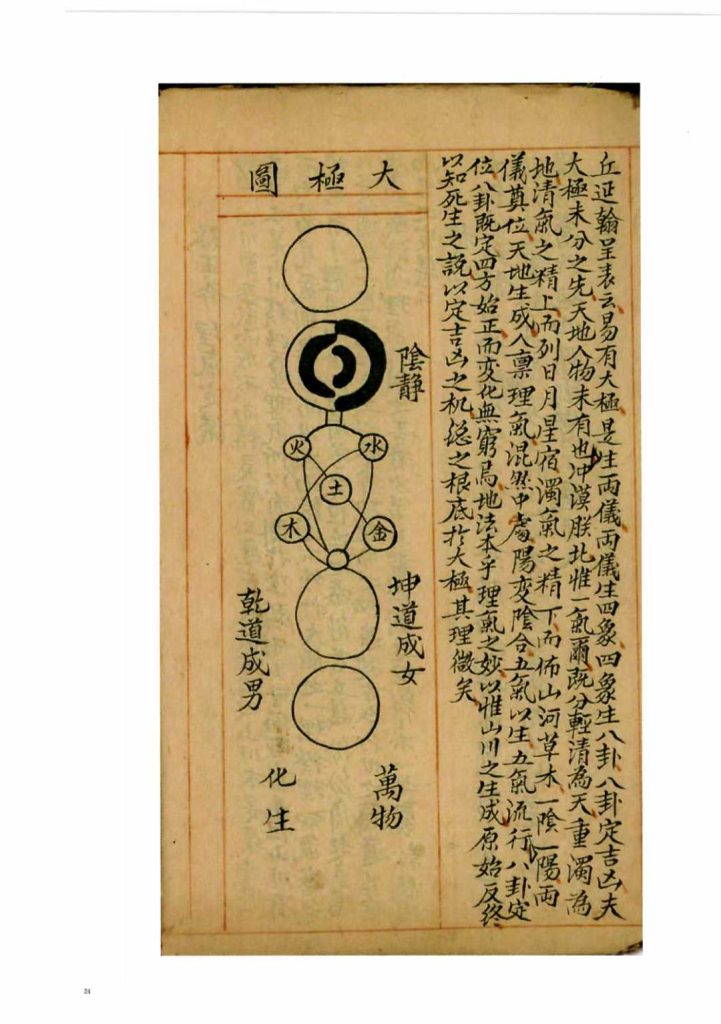 丘延翰呈表云易有大極是生両儀両儀生四象四象生八卦八卦定吉凶夫
大極未分之先天地人物未有也冲漠朕北惟一氣爾既分輕清為天重濁為
地清氣之精上而列日月星宿濁氣之精下而佈山河草木一陰一陽両
儀奠位天地生成人禀理氣混然中處陽変陰合五氣以生五氣流行八卦定
位八卦既定四方始正而变化無窮焉地法本乎理氣之妙以惟山川之生成原始反终
以知死生之説以定吉凶之机総之根底扵大極其理微矣
大極圖
陰静
水
火
土
金
木
坤道成女
乾道成男
萬物
化生
24